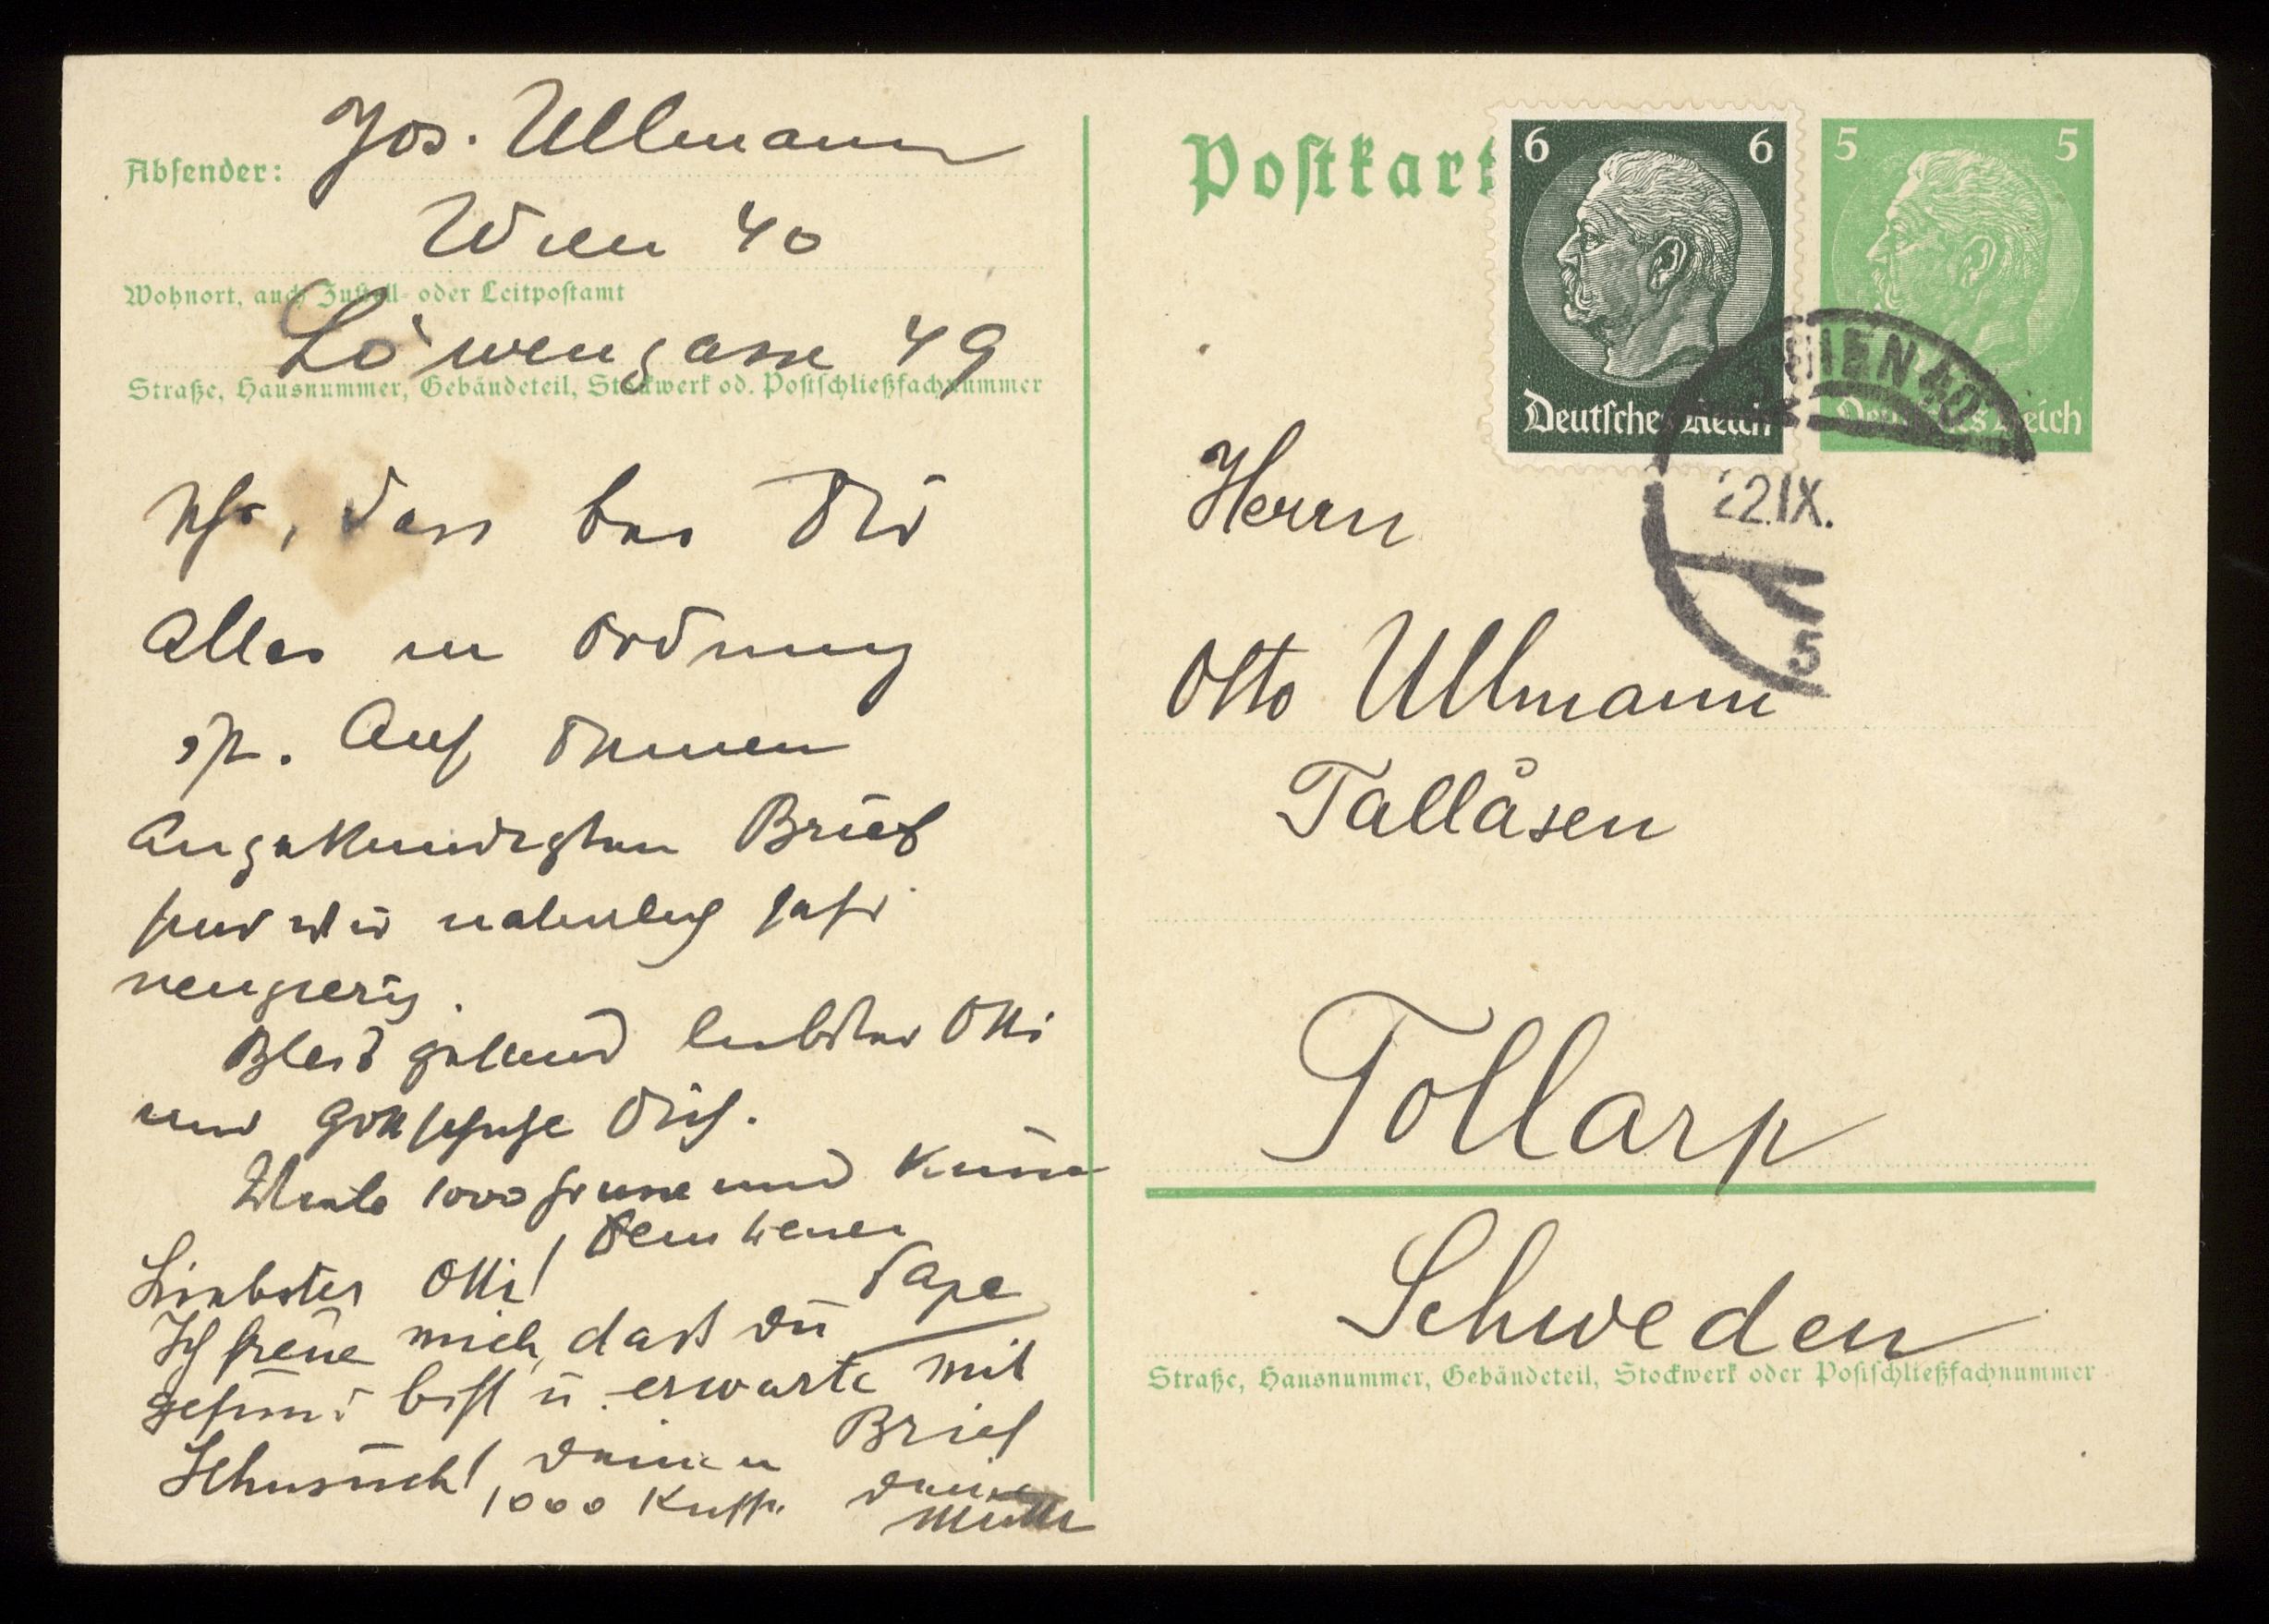 Absender:
Jos. Ullmann
Wien 40
Wohnort, auch Zustell- oder Leitpostamt
Löwengasse 49
Straße, Hausnummer, Gebäudeteil, Stockwerk od. Postschließfachnummer
dass bei Dir
Alles in Ordnung
ist. Auf Deinen
angekündigten Brief
sind wir natürlich sehr
neugierig.
Bleib gesund liebster Otti
und Gott schütze Dich.
1000 Grüsse und Küsse
Dein treuer
Papa
Liebster Otti!
Ich freue mich, dass Du
gesund bist u. erwarte mit
Sehnsucht Deinen Brief
1000 Küsse Deine
Mutti
Postkart
6 6
Deutsches Reich
5 5
Deutsches Reich
WIEN 40
22.IX.
5
Herrn
Otto Ullmann
Tallåsen
Tollarp
Schweden
Straße, Hausnummer, Gebäudeteil, Stockwerk oder Postschließfachnummer